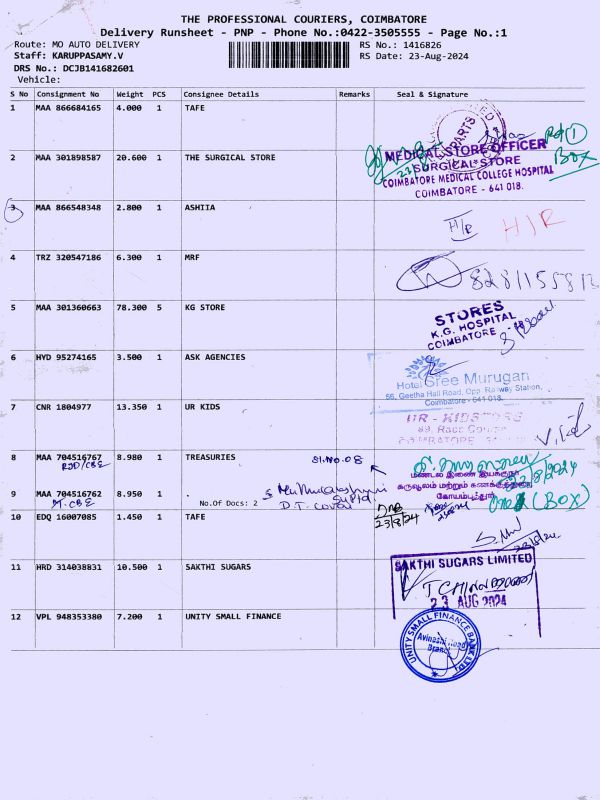 THE PROFESSIONAL COURIERS, COIMBATORE
Delivery Runsheet - PNP - Phone No.:0422-3505555 - Page No.:1
Route: MO AUTO DELIVERY RS No.: 1416826
Staff: KARUPPASAMY.V RS Date: 23-Aug-2024
DRS No.: DCJB141682601
Vehicle:
S No Consignment No Weight PCS Consignee Details Remarks Seal & Signature
1 MAA 866684165 4.000 1 TAFE
PARTS
①
Box
2 MAA 301898587 20.600 1 THE SURGICAL STORE
MEDICAL STORE OFFICER
SURGICAL STORE
COIMBATORE MEDICAL COLLEGE HOSPITAL
COIMBATORE - 641 018.
3 MAA 866548348 2.800 1 ASHIIA
H/R H/R
4 TRZ 320547186 6.300 1 MRF
5 MAA 301360663 78.300 5 KG STORE
STORES
K.G. HOSPITAL
COIMBATORE -
6 HYD 95274165 3.500 1 ASK AGENCIES
Hotel Sree Murugan
56, Geetha Hall Road, Opp. Railway Station,
Coimbatore - 641 018.
7 CNR 1804977 13.350 1 UR KIDS
UR - KIDS STORES
COIMBATORE
8 MAA 704516767 8.980 1 TREASURIES
Sl.No.08
மண்டல இணை இயக்குநர்
கருவூலம் மற்றும் கணக்குத்துறை
கோயம்புத்தூர்
9 MAA 704516762 8.950 1
No.Of Docs: 2
(BOX)
23/8/24
10 EDQ 16007085 1.450 1 TAFE
11 HRD 314038831 10.500 1 SAKTHI SUGARS
SAKTHI SUGARS LIMITED
23 AUG 2024
12 VPL 948353380 7.200 1 UNITY SMALL FINANCE
UNITY SMALL FINANCE BANK LTD.
Avinashi Road
Branch